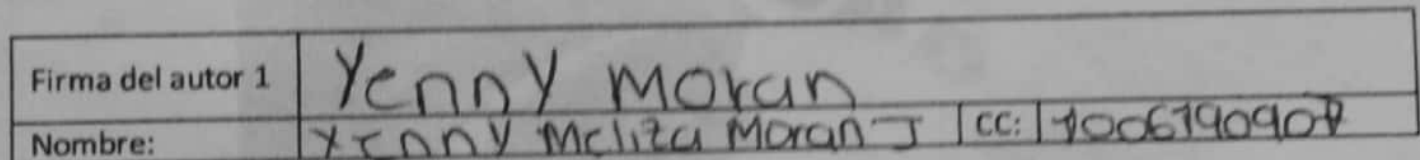 Firma del autor 1 Yenny Moran
Nombre: Yenny Meliza Moran J CC: